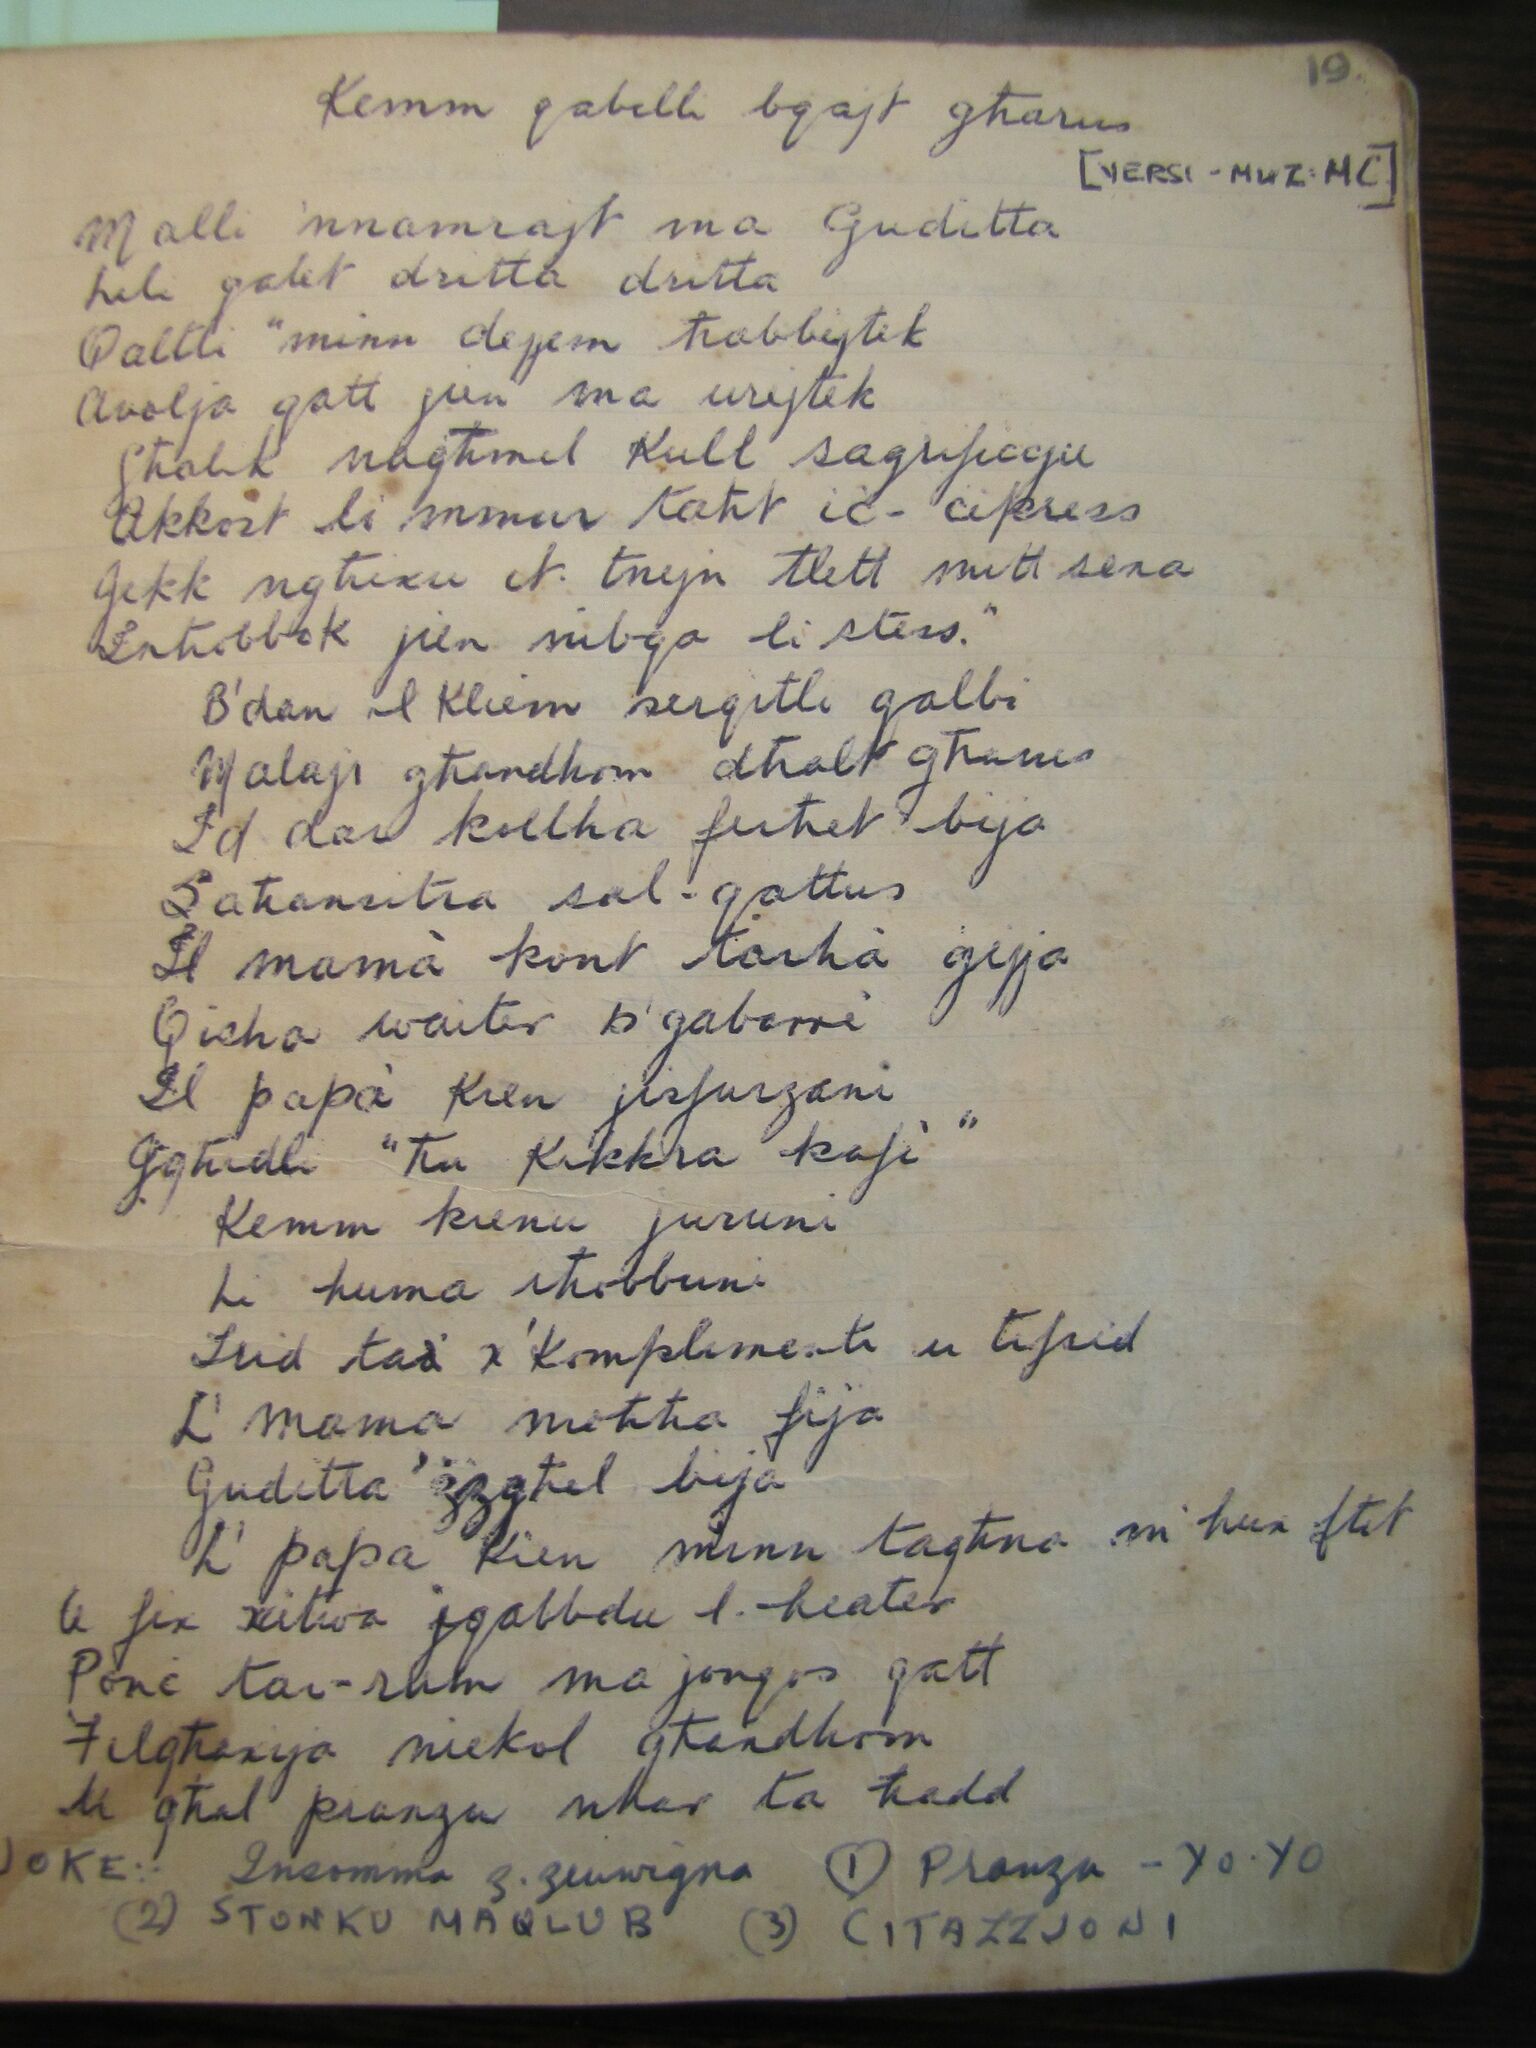 19
Kemm qabelli bqajt għarus
[VERSI - MUZ: MC]
Malli 'nnamrajt ma Guditta
lili qalet dritta dritta
Qaltli "minn dejjem ħabbejtek
Avolja qatt jien ma urejtek
Għalik nagħmel kull sagrifiċċju
Akkost li mmur taħt iċ-ċipress
Jekk ngħixu it-tnejn tlett mitt sena
Inħobbok jien nibqa li stess."
B'dan il kliem serqitli qalbi
Malajr għandhom dħalt għarus
Id dar kollha ferħet bija
Saħansitra sal-qattus
Il mamà kont tarhà ġejja
Qisha waiter b'gabarrè
Il papà kien jisfurzani
Jgħidli "ħu kikkra kafè"
Kemm kienu juruni
Li huma iħobbuni
Trid tara x'komplimenti u tifrid
L'mama moħħa fija
Guditta 'żżgħel bija
L'papa kien minn tagħna m'hux ftit
U fix xitwa jqabbdu l-heater
Ponċ tar-rum ma jonqos qatt
Filgħaxija niekol għandhom
U għal pranzu nhar ta ħadd
JOKE:- Insomma ż-żewwiġna (1) Pranzu - YO-YO
(2) STONKU MAQLUB (3) CITAZZJONI